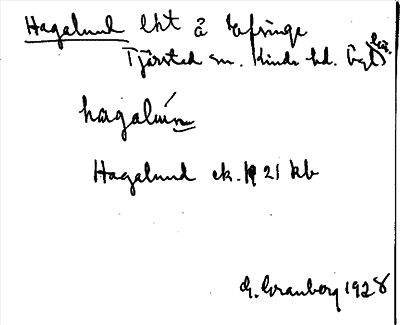 Hagalund lht å Äsinge
Tjärstad sn. Kinda hd. Ögl
hagalun
Hagalund ek. 1921 kb
G. Granberg 1928